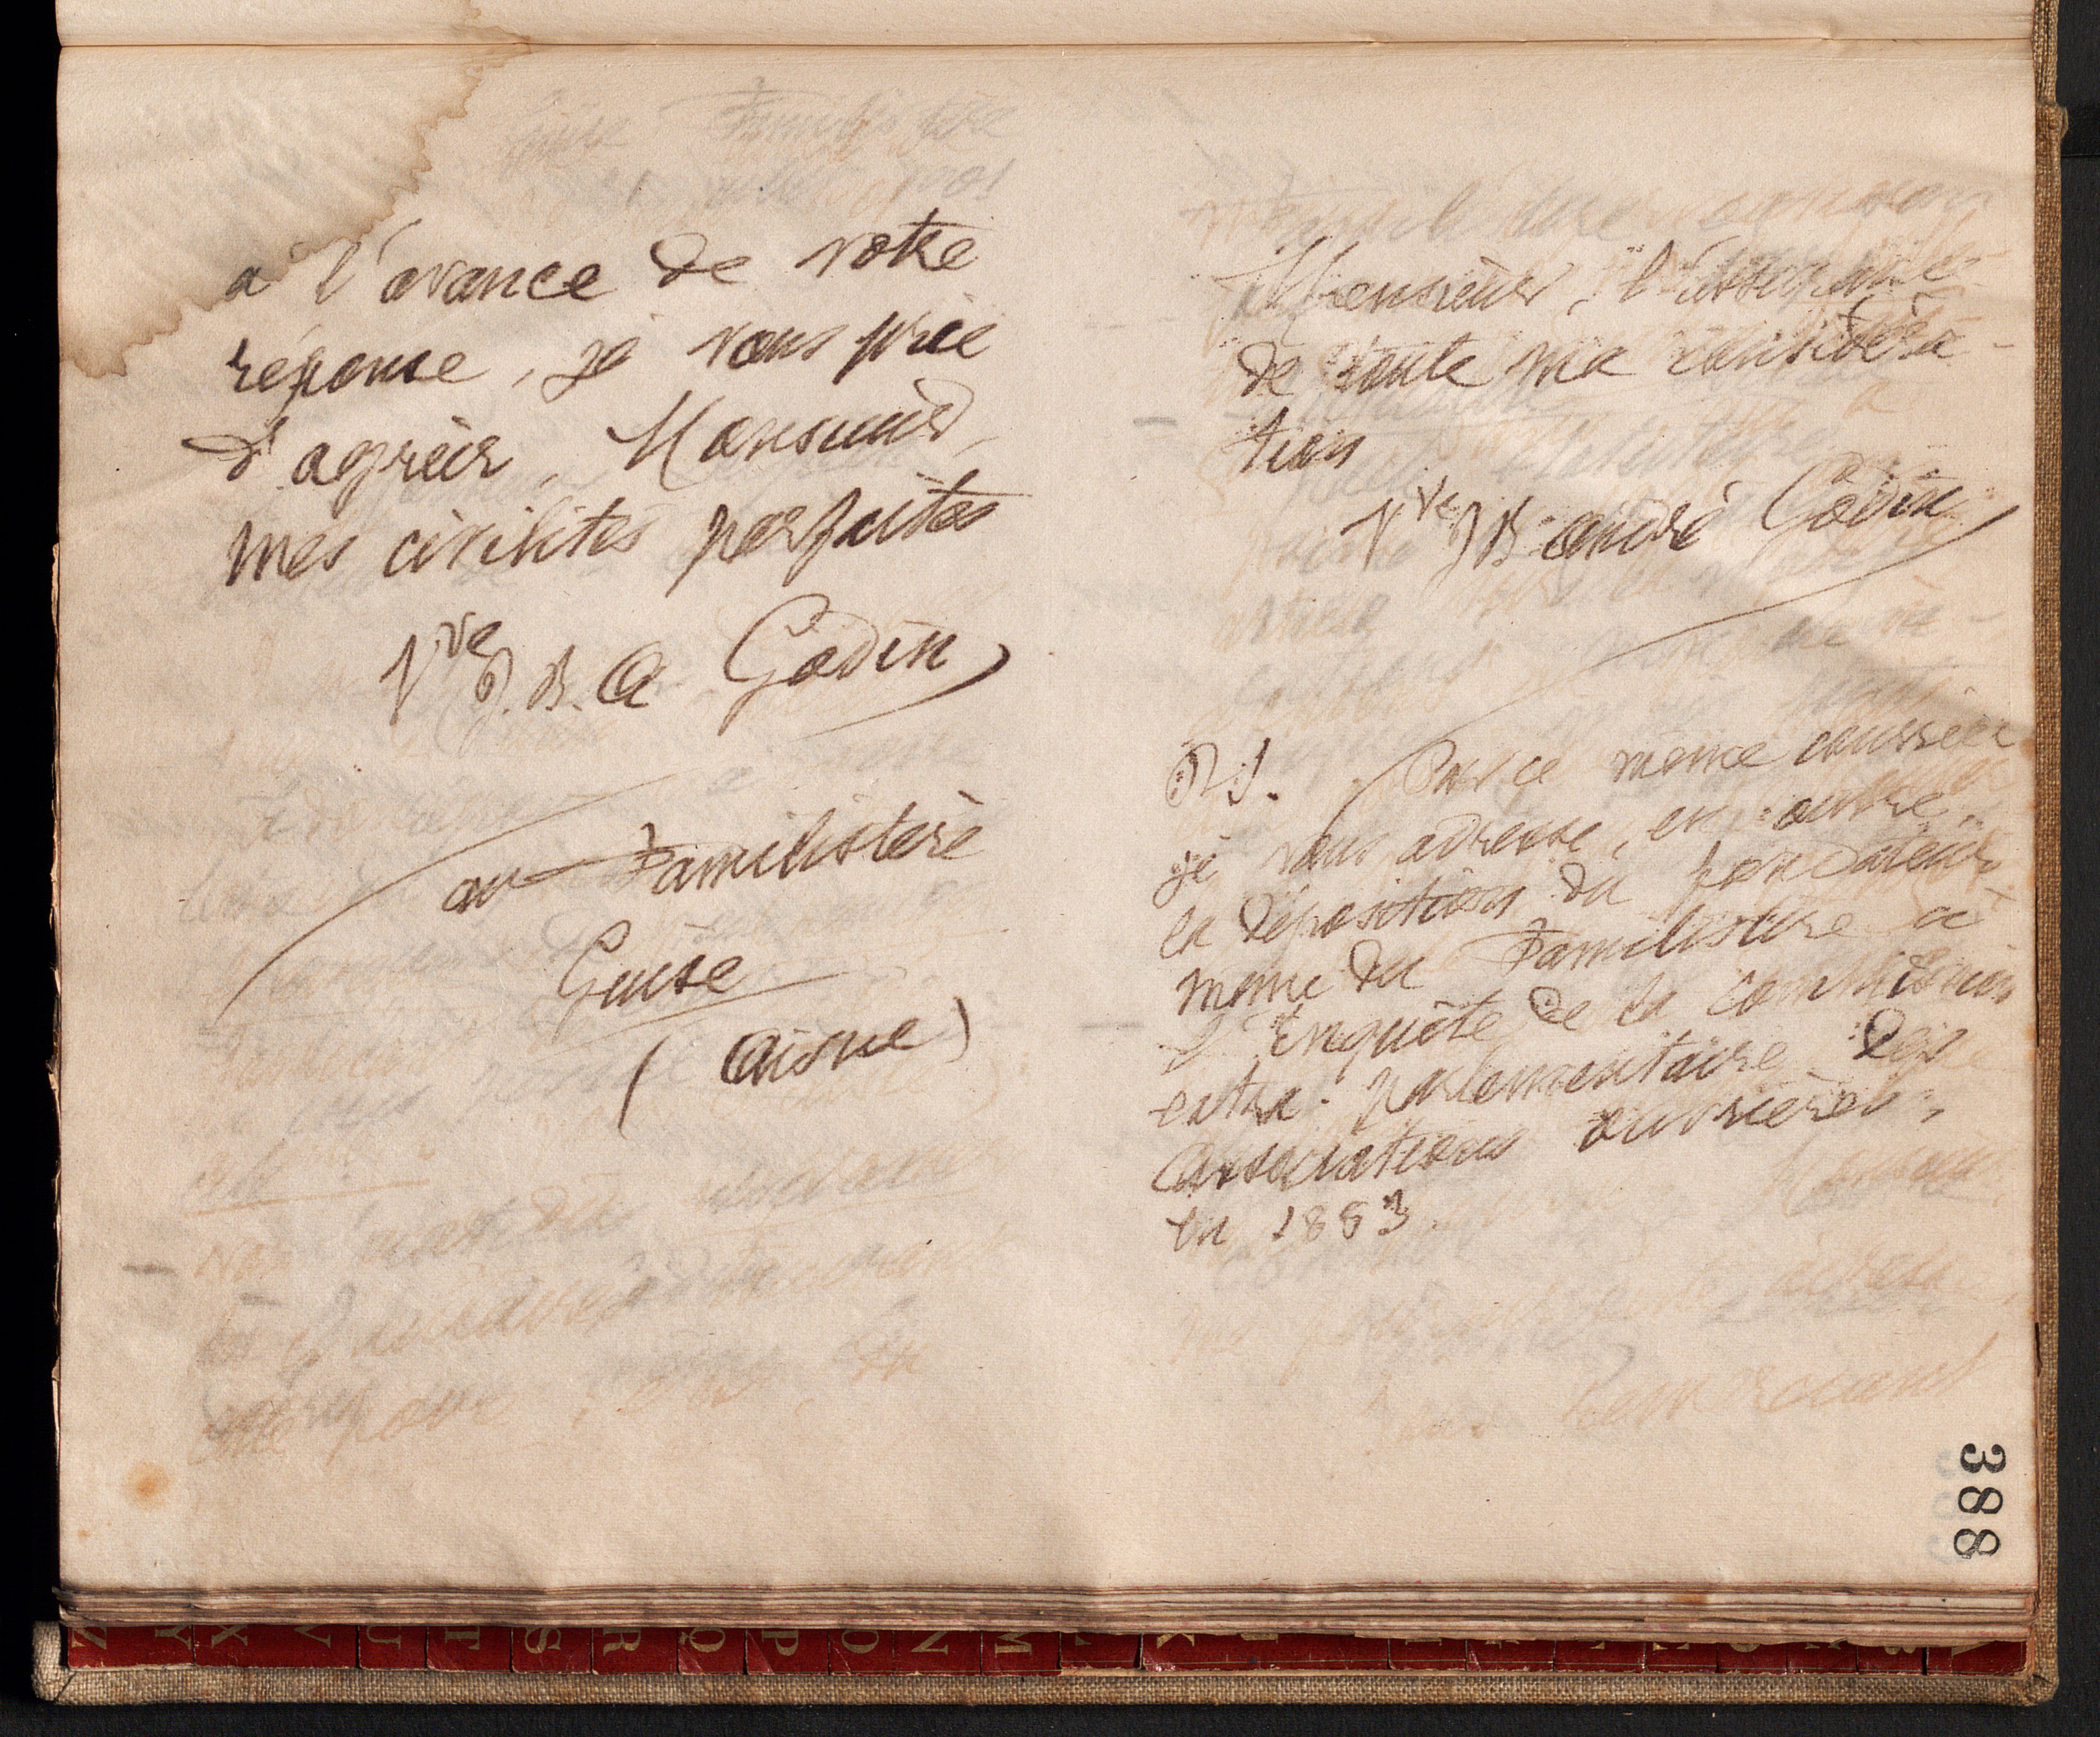 à l'avance de votre
réponse, je vous prie
d'agréer, Monsieur,
mes civilités parfaites
Vve J. B. A Godin
au Familistère
Guise
(Aisne)
Monsieur, l'assurance
de toute ma considéra-
tion
Vve J B André Godin
P.S. Par ce même courrier
je vous adresse, en outre,
la déposition du fondateur
même du Familistère à
l'Enquête de la Commission
extra-parlementaire des
associations ouvrières,
en 1883.
388
Z Y X V U T S R Q P O N M